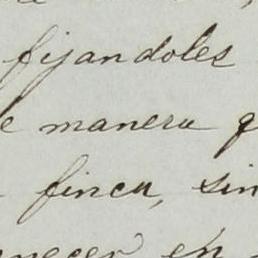 fijandoles
e manera q
finca, sin
necer en